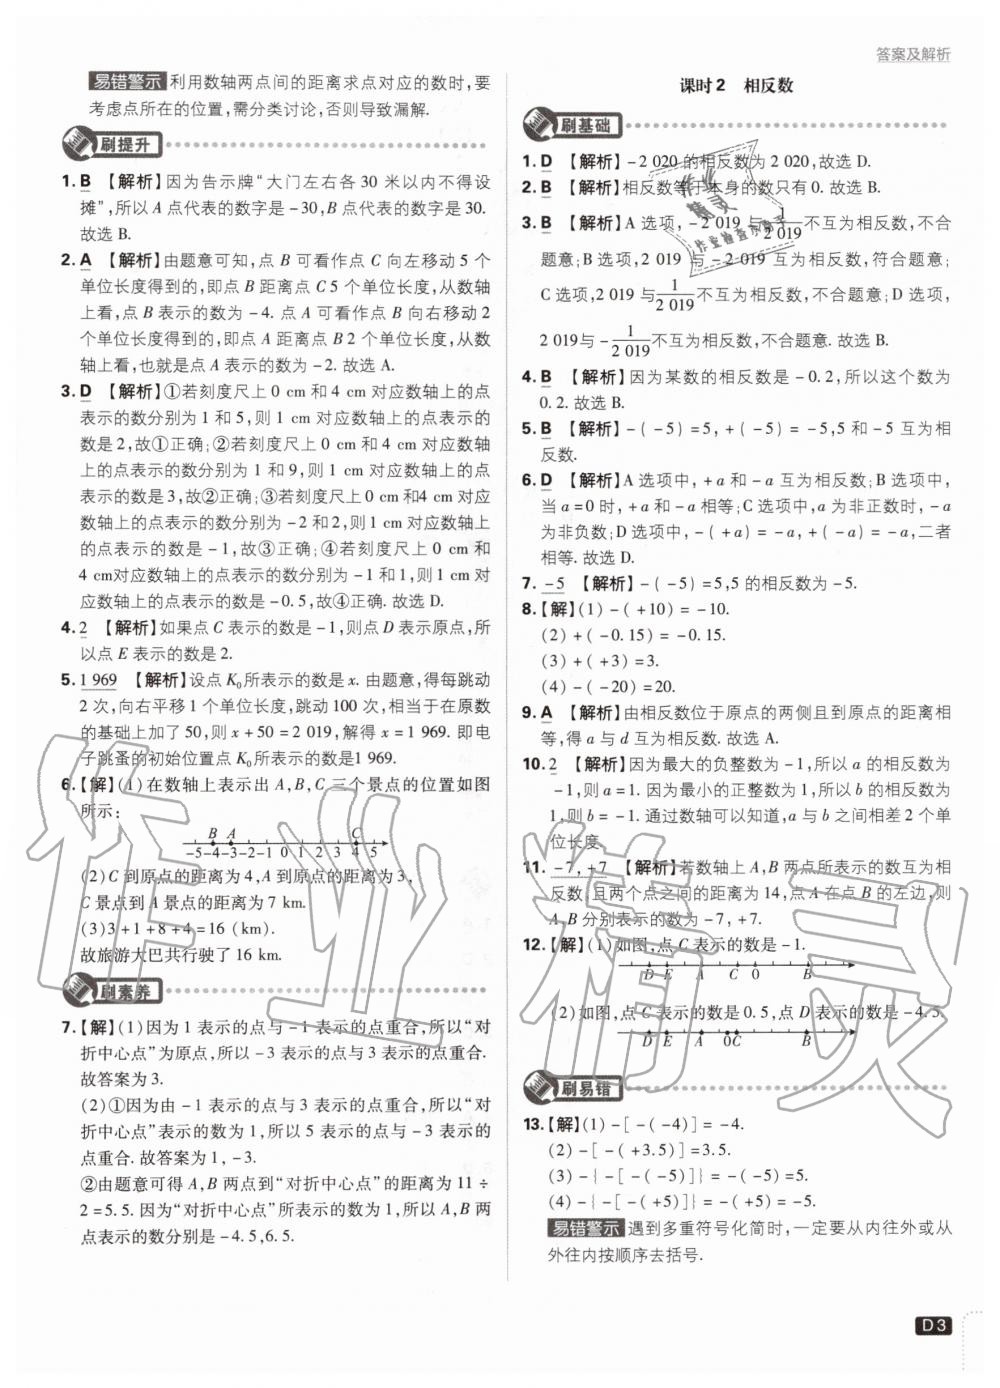 答案及解析
易错警示 利用数轴两点间的距离求点对应的数时,要
考虑点所在的位置,需分类讨论,否则导致漏解.
刷提升
1. B 【解析】因为告示牌“大门左右各 30 米以内不得设
摊”,所以 A 点代表的数字是 -30,B 点代表的数字是 30.
故选 B.
2. A 【解析】由题意可知,点 B 可看作点 C 向左移动 5 个
单位长度得到的,即点 B 距离点 C 5 个单位长度,从数轴
上看,点 B 表示的数为 -4. 点 A 可看作点 B 向右移动 2
个单位长度得到的,即点 A 距离点 B 2 个单位长度,从数
轴上看,也就是点 A 表示的数为 -2. 故选 A.
3. D 【解析】①若刻度尺上 0 cm 和 4 cm 对应数轴上的点
表示的数分别为 1 和 5,则 1 cm 对应数轴上的点表示的
数是 2,故①正确;②若刻度尺上 0 cm 和 4 cm 对应数轴
上的点表示的数分别为 1 和 9,则 1 cm 对应数轴上的点
表示的数是 3,故②正确;③若刻度尺上 0 cm 和4 cm 对应
数轴上的点表示的数分别为 -2 和 2,则 1 cm 对应数轴上
的点表示的数是 -1,故③正确;④若刻度尺上 0 cm 和
4 cm对应数轴上的点表示的数分别为 -1 和 1,则 1 cm 对
应数轴上的点表示的数是 -0.5,故④正确. 故选 D.
4. 2 【解析】如果点 C 表示的数是 -1,则点 D 表示原点,所
以点 E 表示的数是 2.
5. 1 969 【解析】设点 K₀所表示的数是 x. 由题意,得每跳动
2 次,向右平移 1 个单位长度,跳动 100 次,相当于在原数
的基础上加了 50,则 x + 50 = 2 019,解得 x = 1 969. 即电
子跳蚤的初始位置点 K₀表示的数是1 969.
6. 【解】(1)在数轴上表示出 A,B,C 三个景点的位置如图
所示:
B A C
-5-4-3-2-1 0 1 2 3 4 5
(2)C 到原点的距离为 4,A 到原点的距离为 3,
C 景点到 A 景点的距离为 7 km.
(3)3+1+8+4=16 (km).
故旅游大巴共行驶了 16 km.
刷素养
7. 【解】(1)因为 1 表示的点与 -1 表示的点重合,所以“对
折中心点”为原点,所以 -3 表示的点与 3 表示的点重合.
故答案为 3.
(2)①因为由 -1 表示的点与 3 表示的点重合,所以“对
折中心点”表示的数为 1,所以 5 表示的点与 -3 表示的
点重合. 故答案为 1, -3.
②由题意可得 A,B 两点到“对折中心点”的距离为 11 ÷
2 = 5.5. 因为“对折中心点”所表示的数为 1,所以 A,B 两
点表示的数分别是 -4.5,6.5.
课时 2 相反数
刷基础
1. D 【解析】-2 020 的相反数为 2 020,故选 D.
2. B 【解析】相反数等于本身的数只有 0. 故选 B.
3. B 【解析】A 选项, -2 019 与 -1/2 019不互为相反数,不合
题意;B 选项,2 019 与 -2 019 互为相反数,符合题意;
C 选项,2 019 与1/2 019不互为相反数,不合题意;D 选项,
2 019与 -1/2 019不互为相反数,不合题意. 故选 B.
4. B 【解析】因为某数的相反数是 -0.2,所以这个数为
0.2. 故选 B.
5. B 【解析】-( -5) =5, +( -5) = -5,5 和 -5 互为相
反数.
6. D 【解析】A 选项中, +a 和 -a 互为相反数;B 选项中,
当 a =0 时, +a 和 -a 相等;C 选项中,a 为非正数时, -a
为非负数;D 选项中, -( +a) = -a, +( -a) = -a,二者
相等. 故选 D.
7. -5 【解析】-( -5) =5,5 的相反数为 -5.
8. 【解】(1) -( +10) = -10.
(2) +( -0.15) = -0.15.
(3) +( +3) =3.
(4) -( -20) =20.
9. A 【解析】由相反数位于原点的两侧且到原点的距离相
等,得 a 与 d 互为相反数. 故选 A.
10. 2 【解析】因为最大的负整数为 -1,所以 a 的相反数为
-1,则 a =1. 因为最小的正整数为 1,所以 b 的相反数为
1,则 b = -1. 通过数轴可以知道,a 与 b 之间相差 2 个单
位长度.
11. -7, +7 【解析】若数轴上 A,B 两点所表示的数互为相
反数,且两个点之间的距离为 14,点 A 在点 B 的左边,则
A,B 分别表示的数为 -7, +7.
12. 【解】(1)如图,点 C 表示的数是 -1.
D E A C 0 B
(2)如图,点 C 表示的数是 0.5,点 D 表示的数是 -4.5.
D E A 0C B
刷易错
13. 【解】(1) -[ -( -4)] = -4.
(2) -[ -( +3.5)] =3.5.
(3) -{ -[ -( -5)]} = -( -5) =5.
(4) -{ -[ -( +5)]} = -( +5) = -5.
易错警示 遇到多重符号化简时,一定要从内往外或从
外往内按顺序去括号.
D3
作业精灵
作业
精灵
作业检查小助手